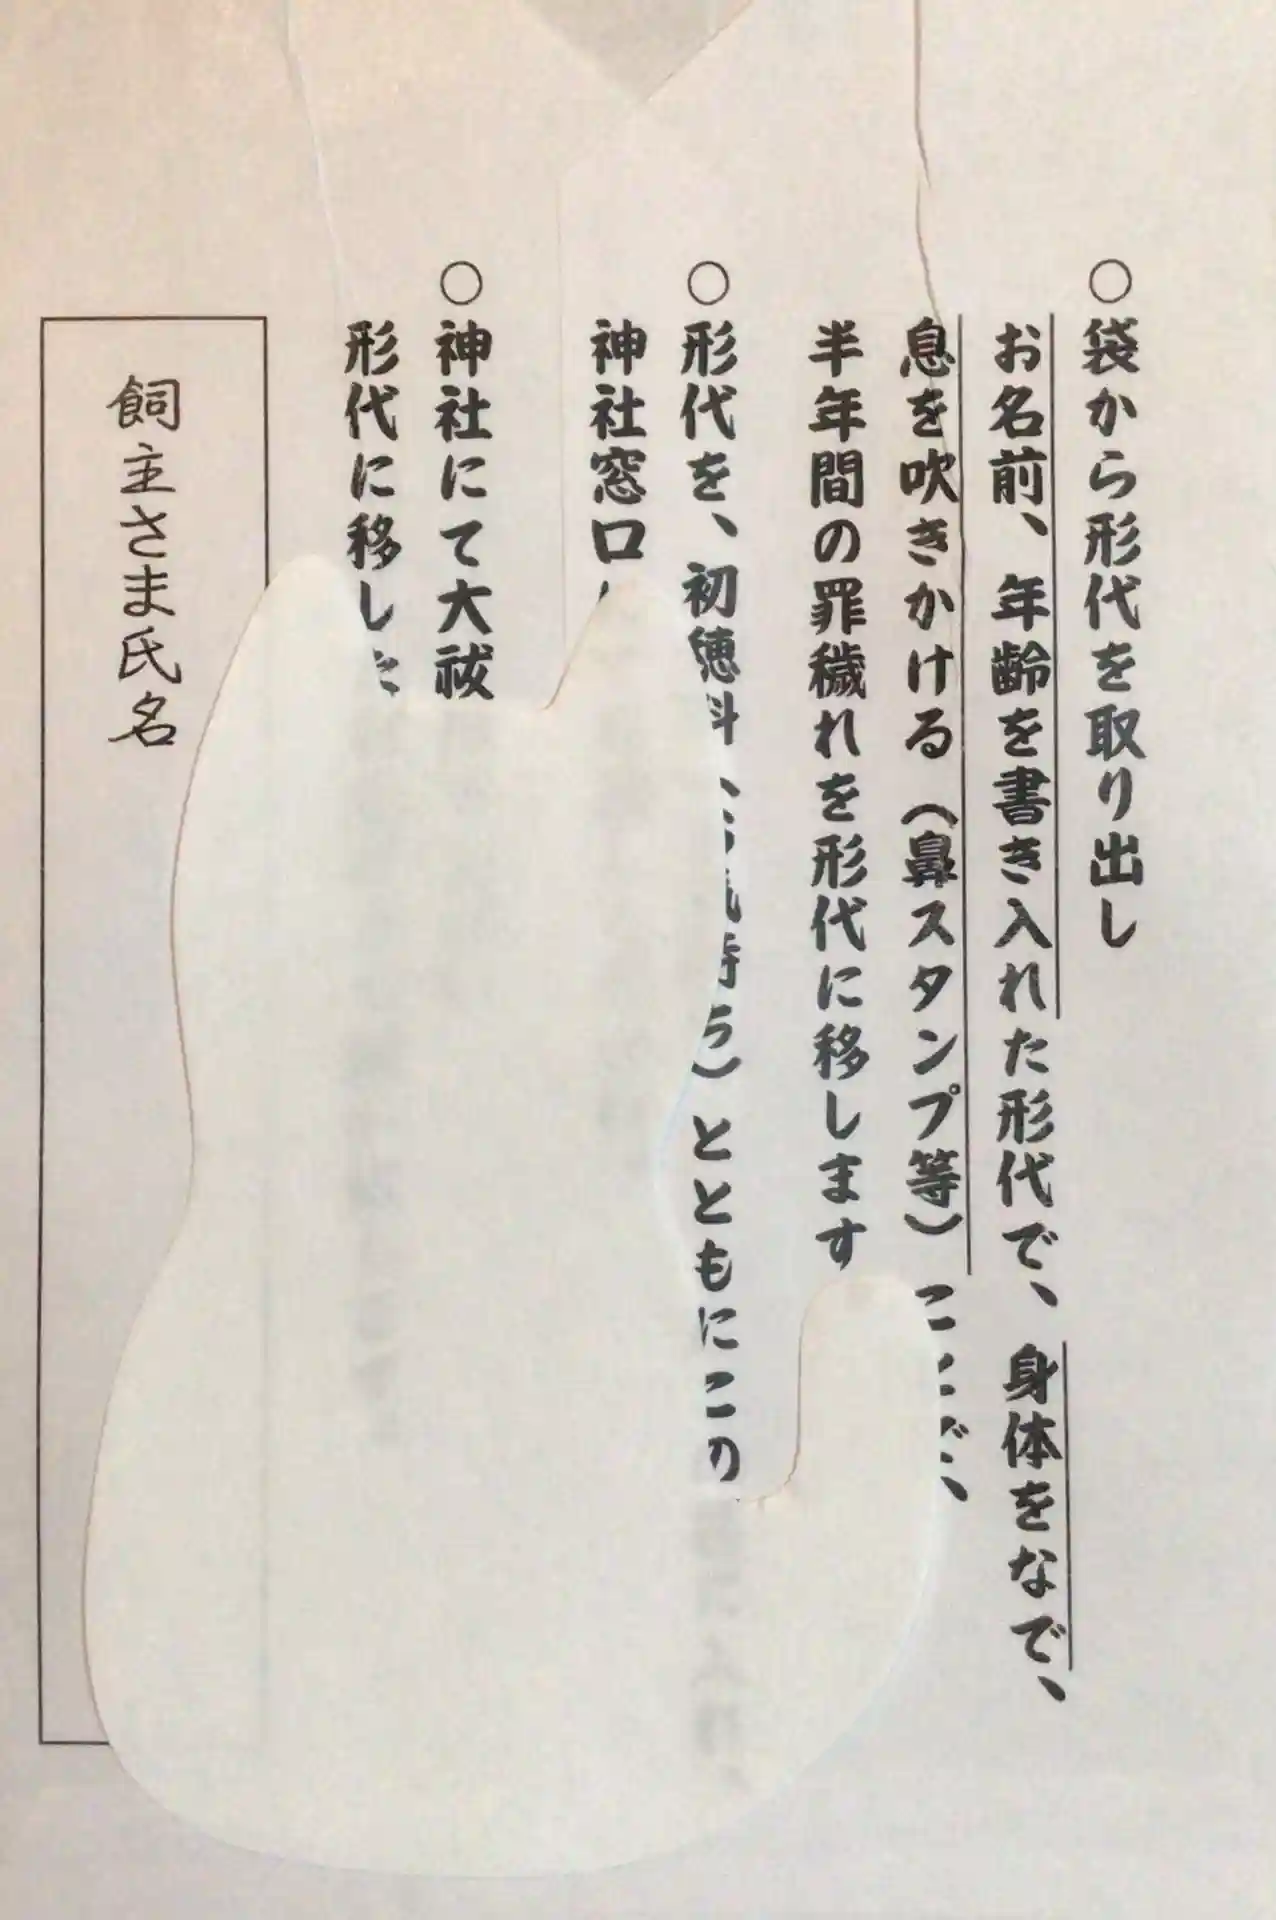 ○袋から形代を取り出し
お名前、年齢を書き入れた形代で、身体をなで、
息を吹きかける（鼻スタンプ等）ことで、
半年間の罪穢れを形代に移します
○形代を、初穂料（お気持ち）とともにこの
神社窓口
○神社にて大祓
形代に移した
飼主さま氏名